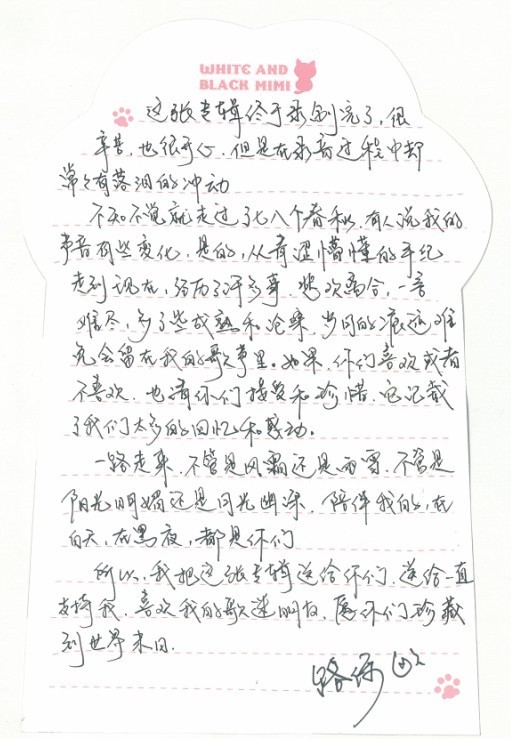 WHITE AND
BLACK MIMI
这张专辑终于录制完了，很
辛苦，也很开心，但是在录音过程中却
常々有落泪的冲动
不知不觉就走过了七八个春秋，有人说我的
声音有些变化，是的，从青涩懵懂的年纪
走到现在，经历了许多事，悲欢离合，一言
难尽，多了些成熟和沧桑，岁月的痕迹难
免会留在我的歌声里。如果，你们喜欢或者
不喜欢，也请你们接受和珍惜，它记载
了我们太多的回忆和感动。
一路走来，不管是风霜还是雨雪，不管是
阳光明媚还是月光幽深，陪伴我的，在
白天，在黑夜，都是你们
所以，我把这张专辑送给你们，送给一直
支持我，喜欢我的歌迷朋友，愿你们珍藏
到世界末日.